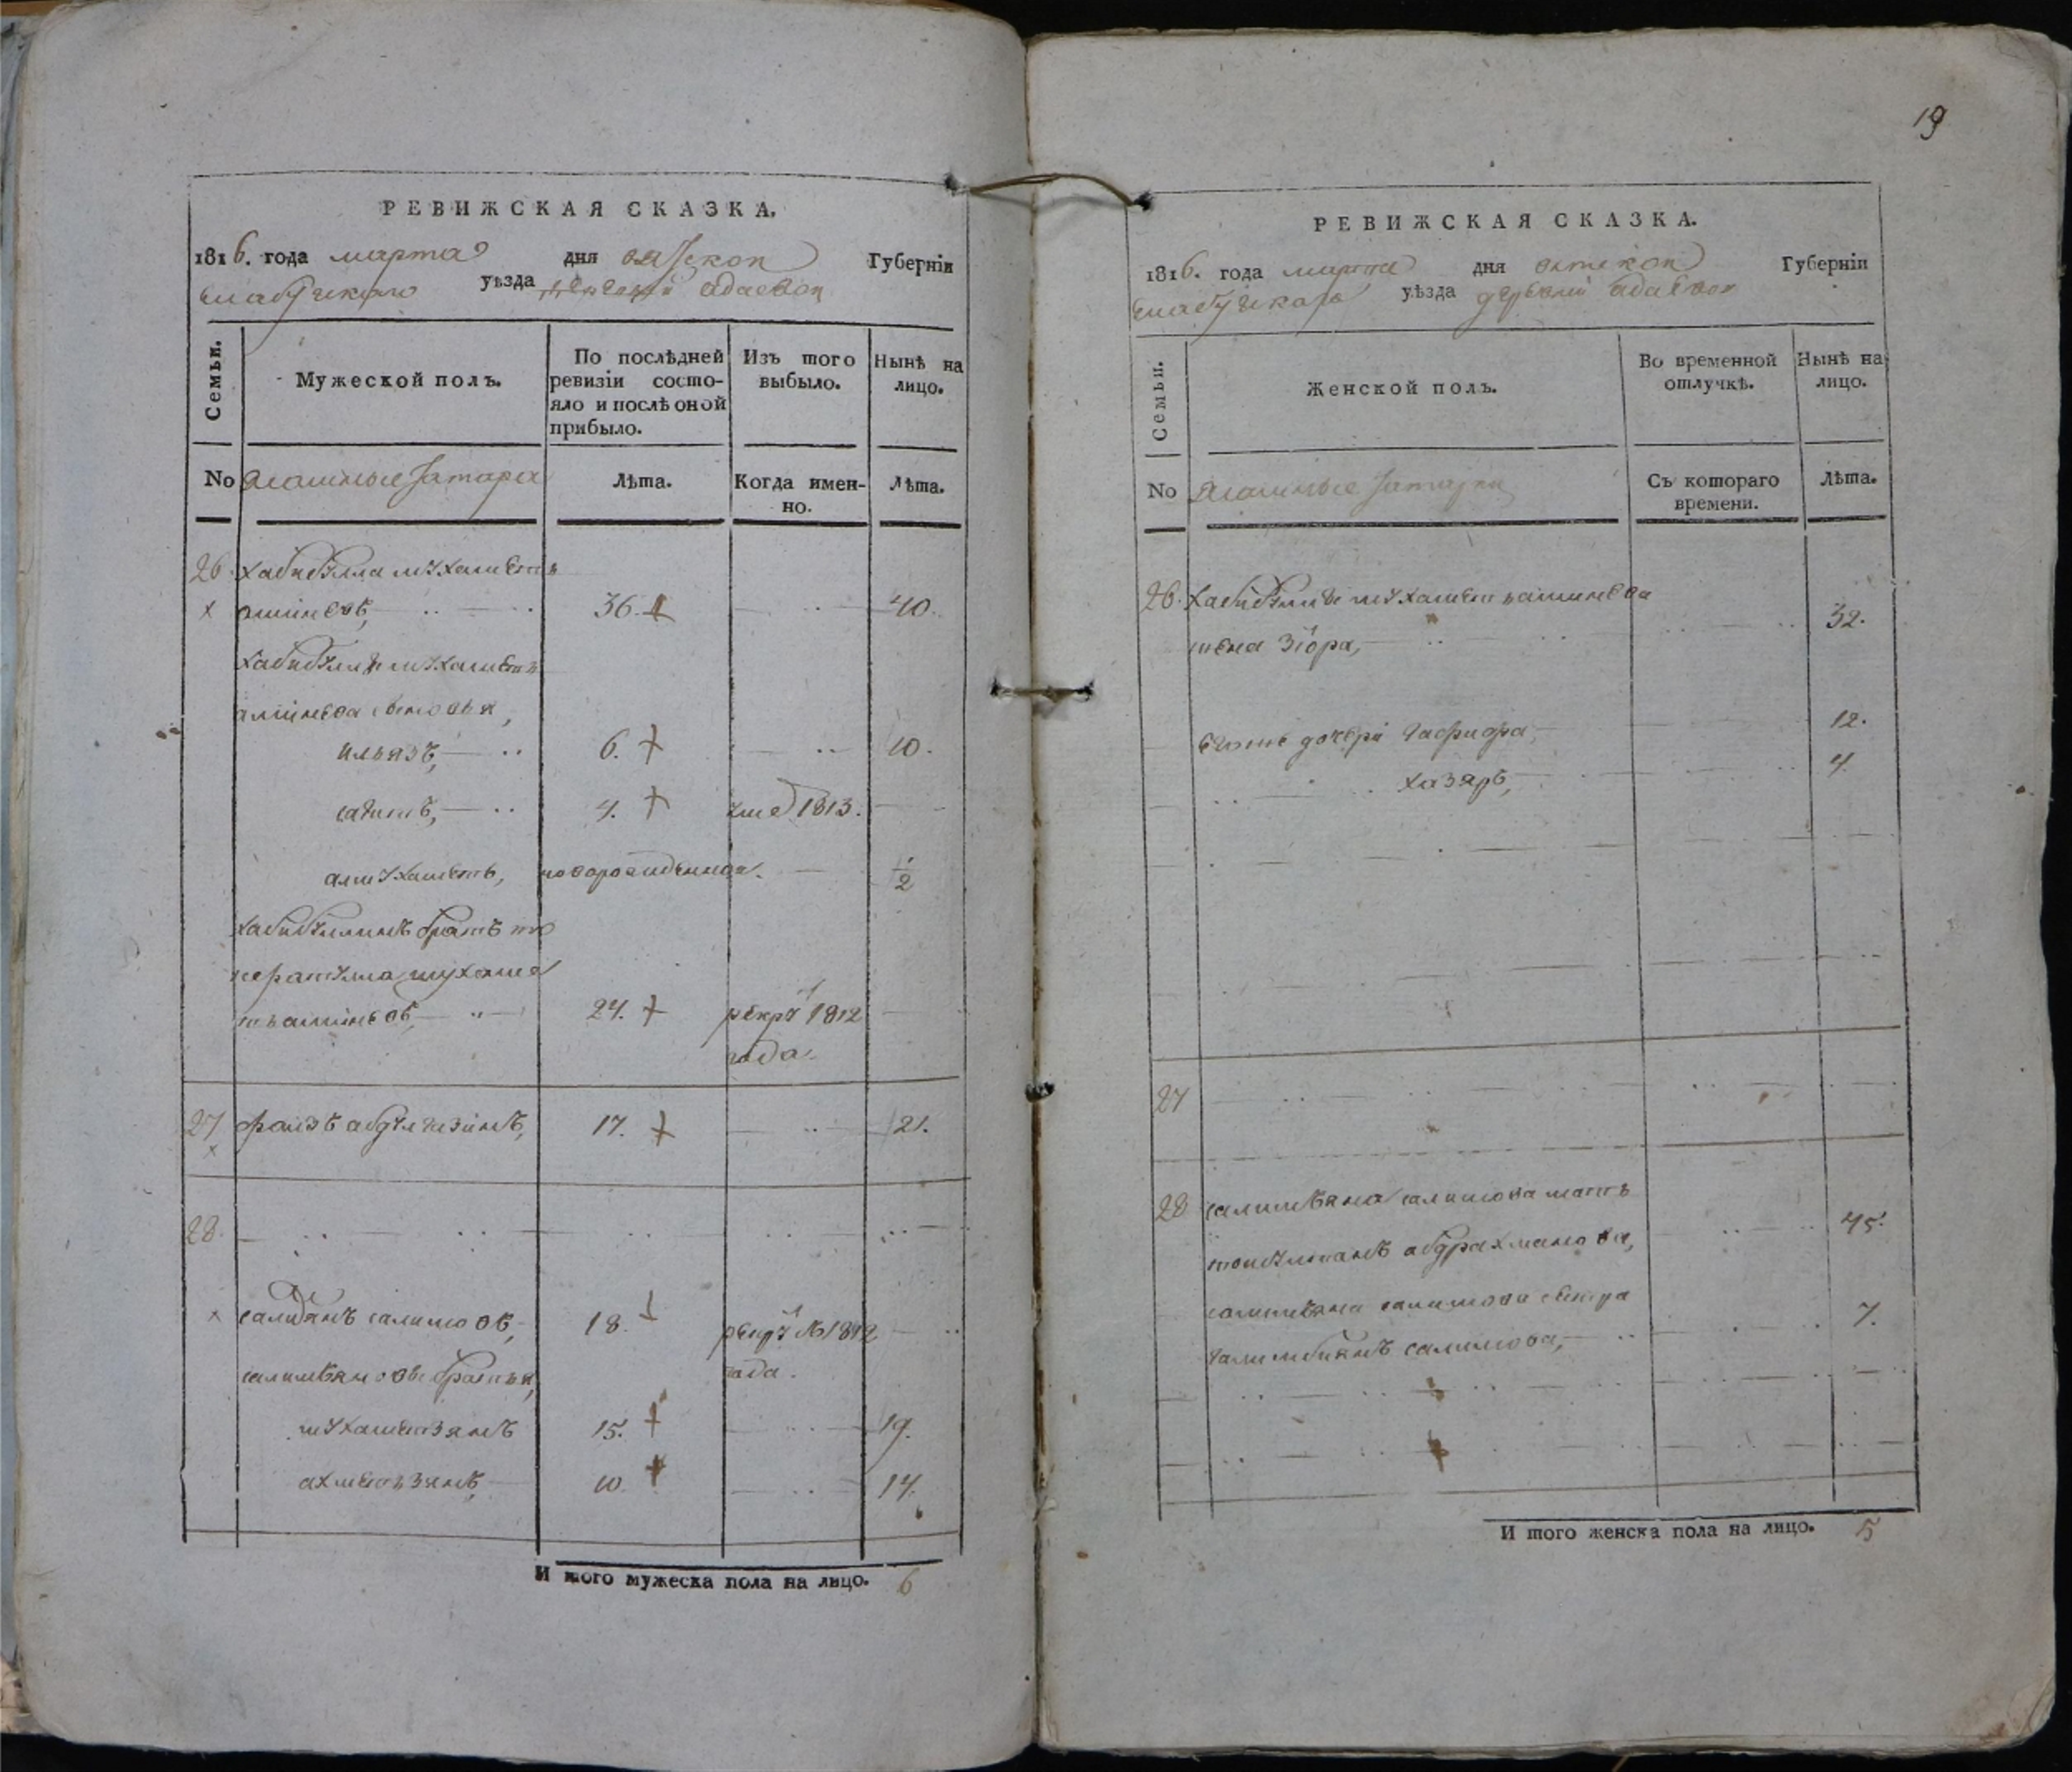 РЕВИЖСКАЯ СКАЗКА.
1816. года марта дня вятской Губернiи
елабужского уѣзда деревни адаевой
Семьи.
Мужеской полъ.
По послѣдней ревизiи состо-
яло и послѣ оной прибыло.
Изъ того выбыло.
Нынѣ на лицо.
No ясашные татара
Лѣта.
Когда имен-
но.
Лѣта.
26. хабибулла мухаметь
аминевъ, 36. 40.
хабибуллы мухаметь
аминева сыновья,
ильязъ, 6. 10.
сагитъ, 4. уме 1813.
алмухаметь, новорожденной. 1/2
хабибуллинъ братъ
мухаме
тьаминевъ, 24. рекру 1812
года.
27 фаизъ абдулгазинъ, 17. 21.
28.
салимовъ, 18. рекру 1812
года.
братья,
мухаметзянъ 15. 19.
ахметьзянъ, 10. 14.
И того мужеска пола на лицо. 6
19
РЕВИЖСКАЯ СКАЗКА.
1816. года марта дня вятской Губернiи
елабужскаго уѣзда деревни адаевой
Семьи.
Женской полъ.
Во временной отлучкѣ.
Нынѣ на лицо.
No ясашные татарки
Съ котораго времени.
Лѣта.
26. хабибуллы мухаметьаминева
жена зiора, 32.
дочери гафифа, 12.
хазяръ, 4.
27
28 салимьяна салимова мать
абдрахманова, 45.
салимьяна салимова сестра
салимова, 7.
И того женска пола на лицо. 5